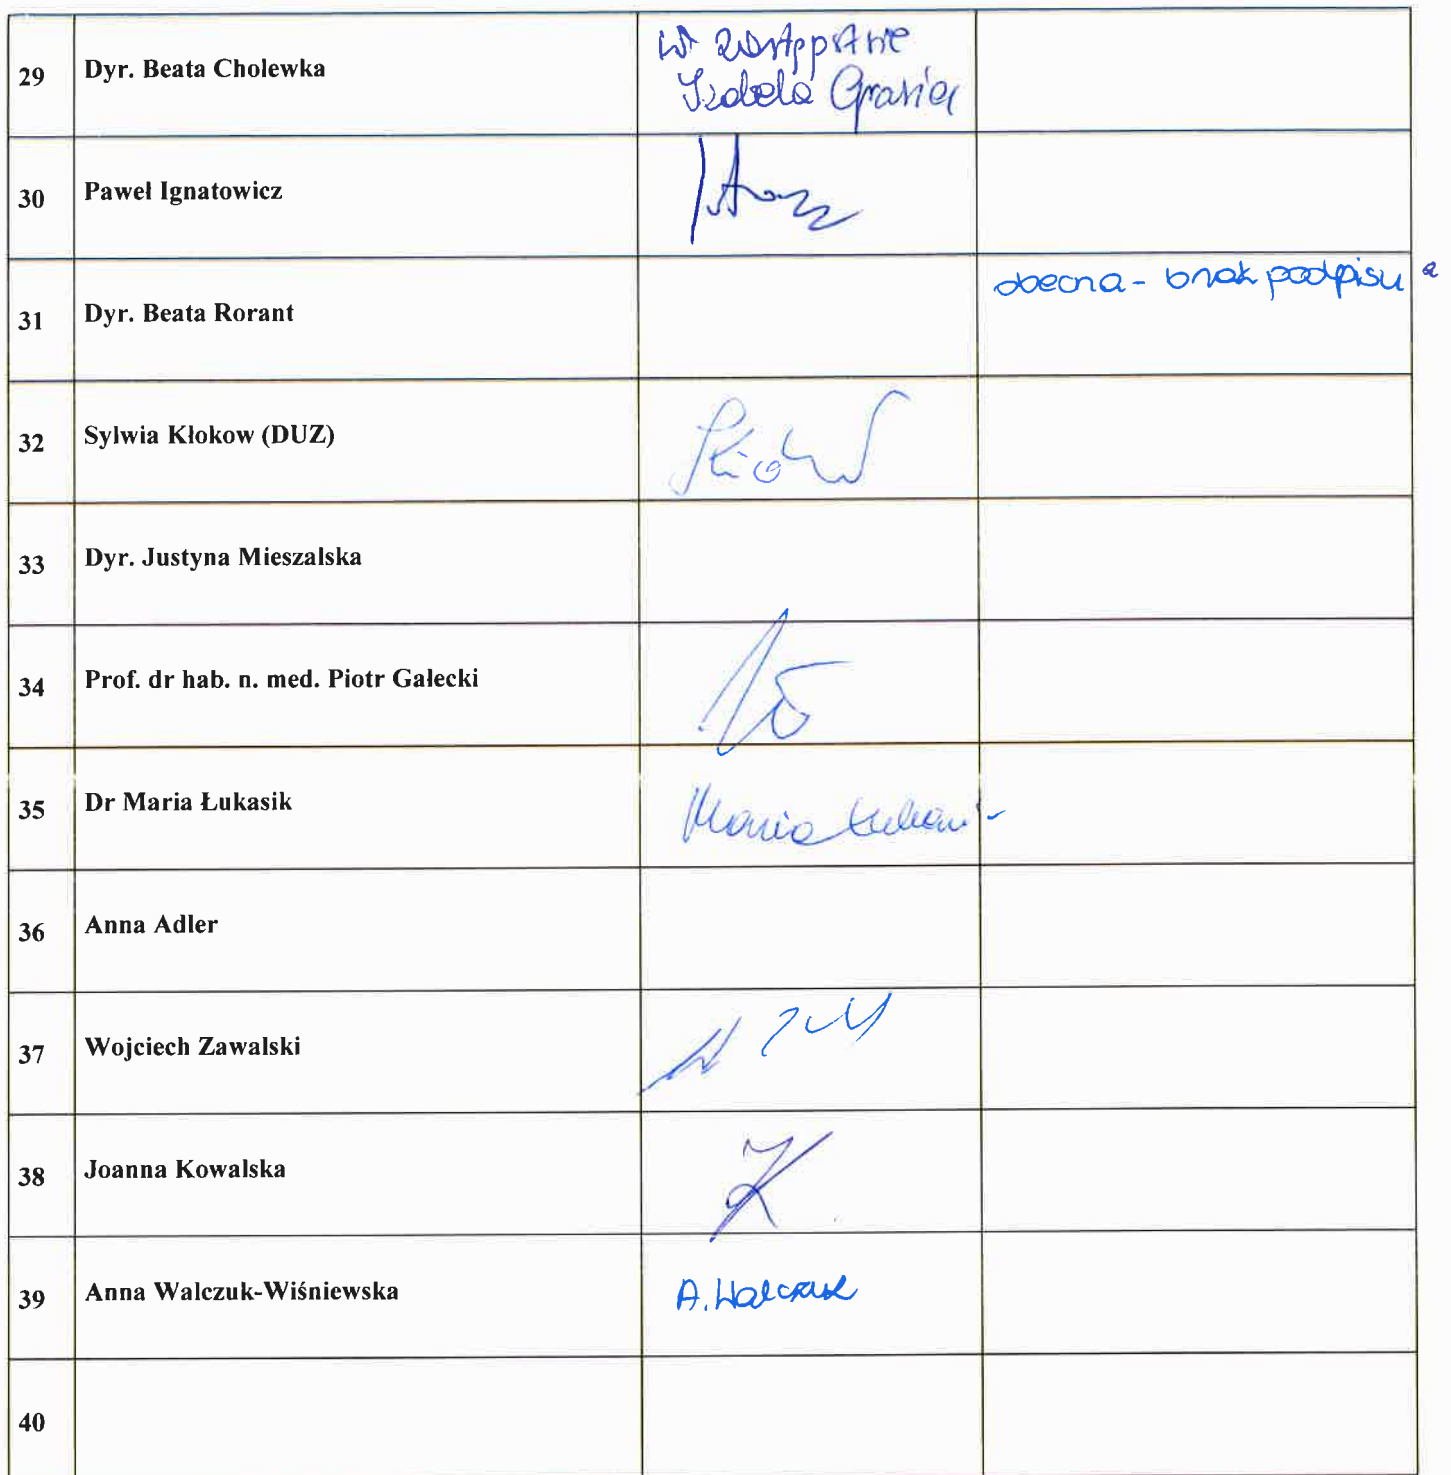 29 Dyr. Beata Cholewka w zastępstwie
Izabela
30 Paweł Ignatowicz
31 Dyr. Beata Rorant obecna - brak podpisu
32 Sylwia Kłokow (DUZ)
33 Dyr. Justyna Mieszalska
34 Prof. dr hab. n. med. Piotr Gałecki
35 Dr Maria Łukasik Maria
36 Anna Adler
37 Wojciech Zawalski
38 Joanna Kowalska
39 Anna Walczuk-Wiśniewska A. Walczuk
40